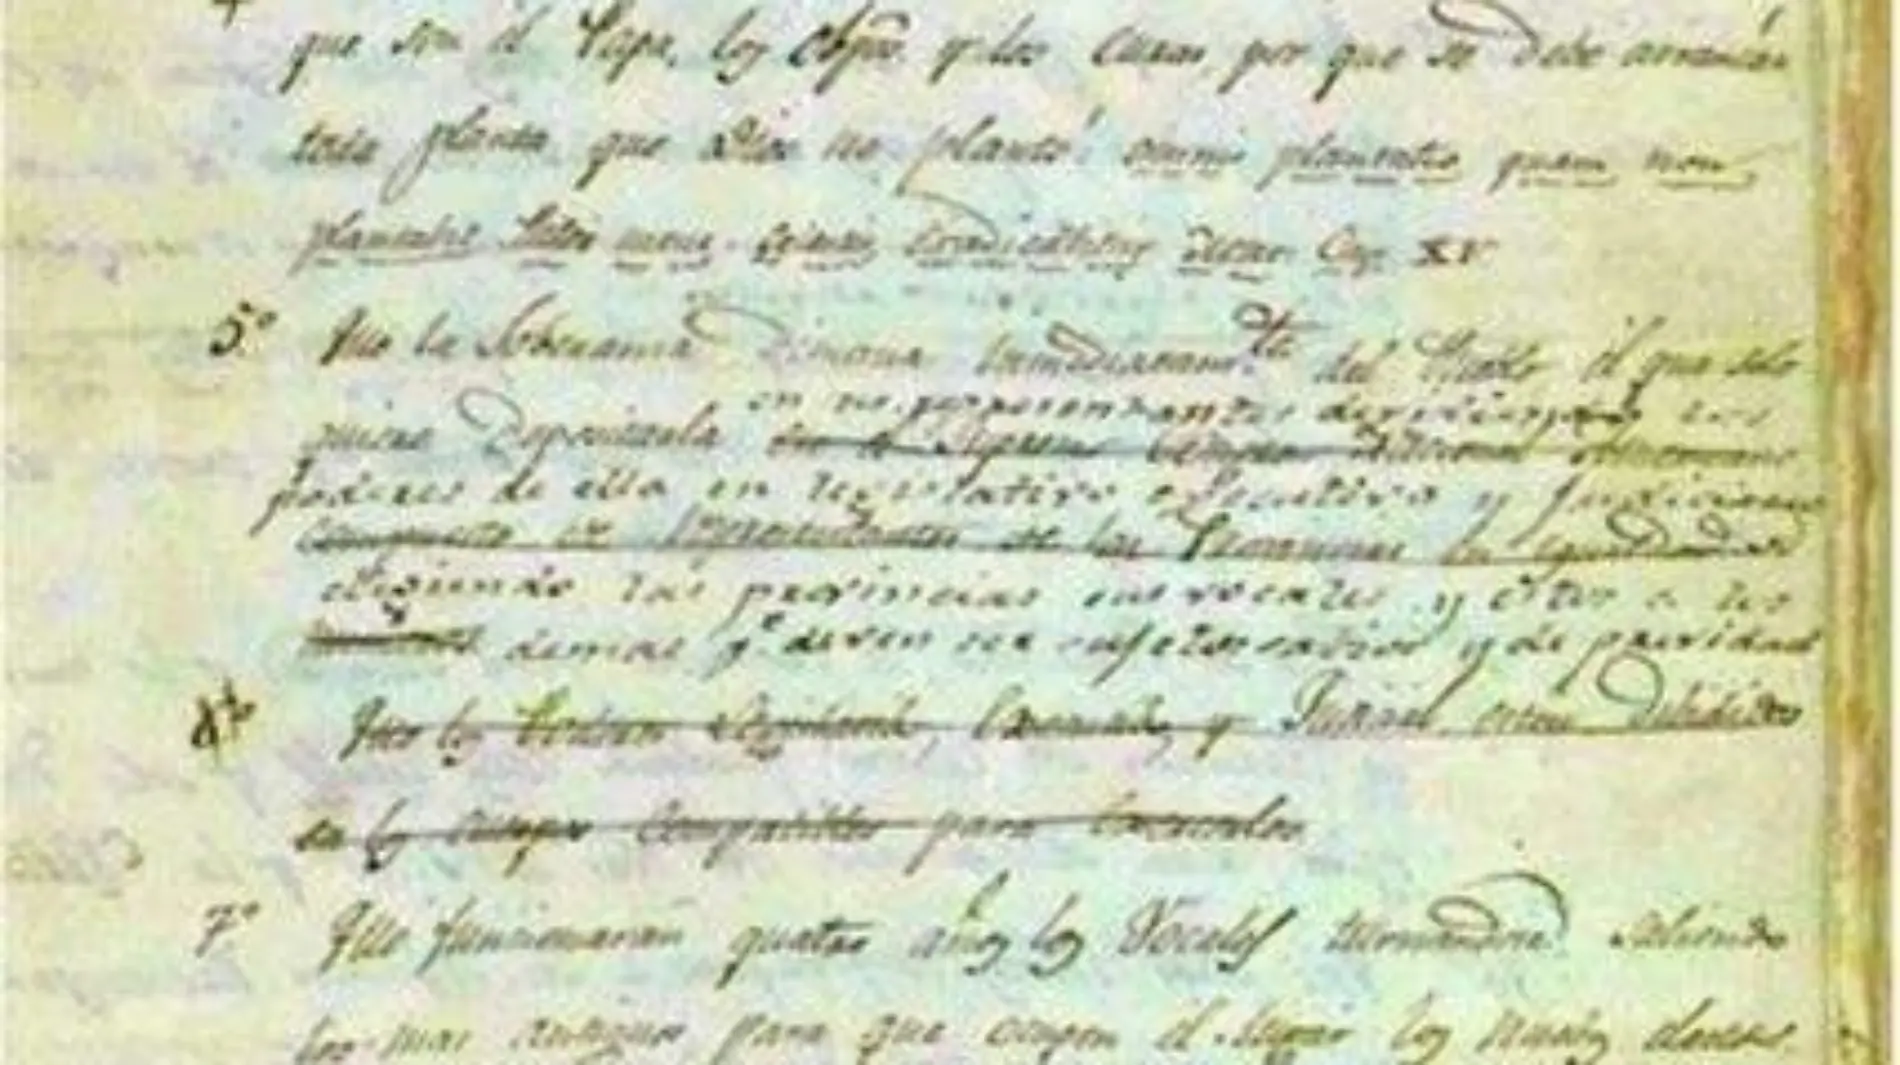 que son el Papa, los Obpos. y los Curas, por que se debe arrancar
toda planta que Dios no plantó: omnis plantatis quam non
plantabit Pater meus Celestis Eradicabitur Mat. Cap. XV
5º Que la Soberania dimana inmediatamte. del Pueblo, el que solo
en sus representantes dividiendo los
quiere depositarla en el Supremo Congreso Nacional Americano
poderes de ella en Legislativo Executivo y Judiciario
compuesto de representantes de las Provincias en igualdad de
eligiendo las provincias sus vocales, y estos a los
demas qe. deven ser sujetos savios y de providad
Que los Poderes Legislativo, Executivo y Judicial esten divididos
en los cuerpos compatibles para exercerlos
7º Que funcionarán quatro años los Vocales turnandose saliendo
los mas antiguos para que ocupen el lugar los nuevos electos.